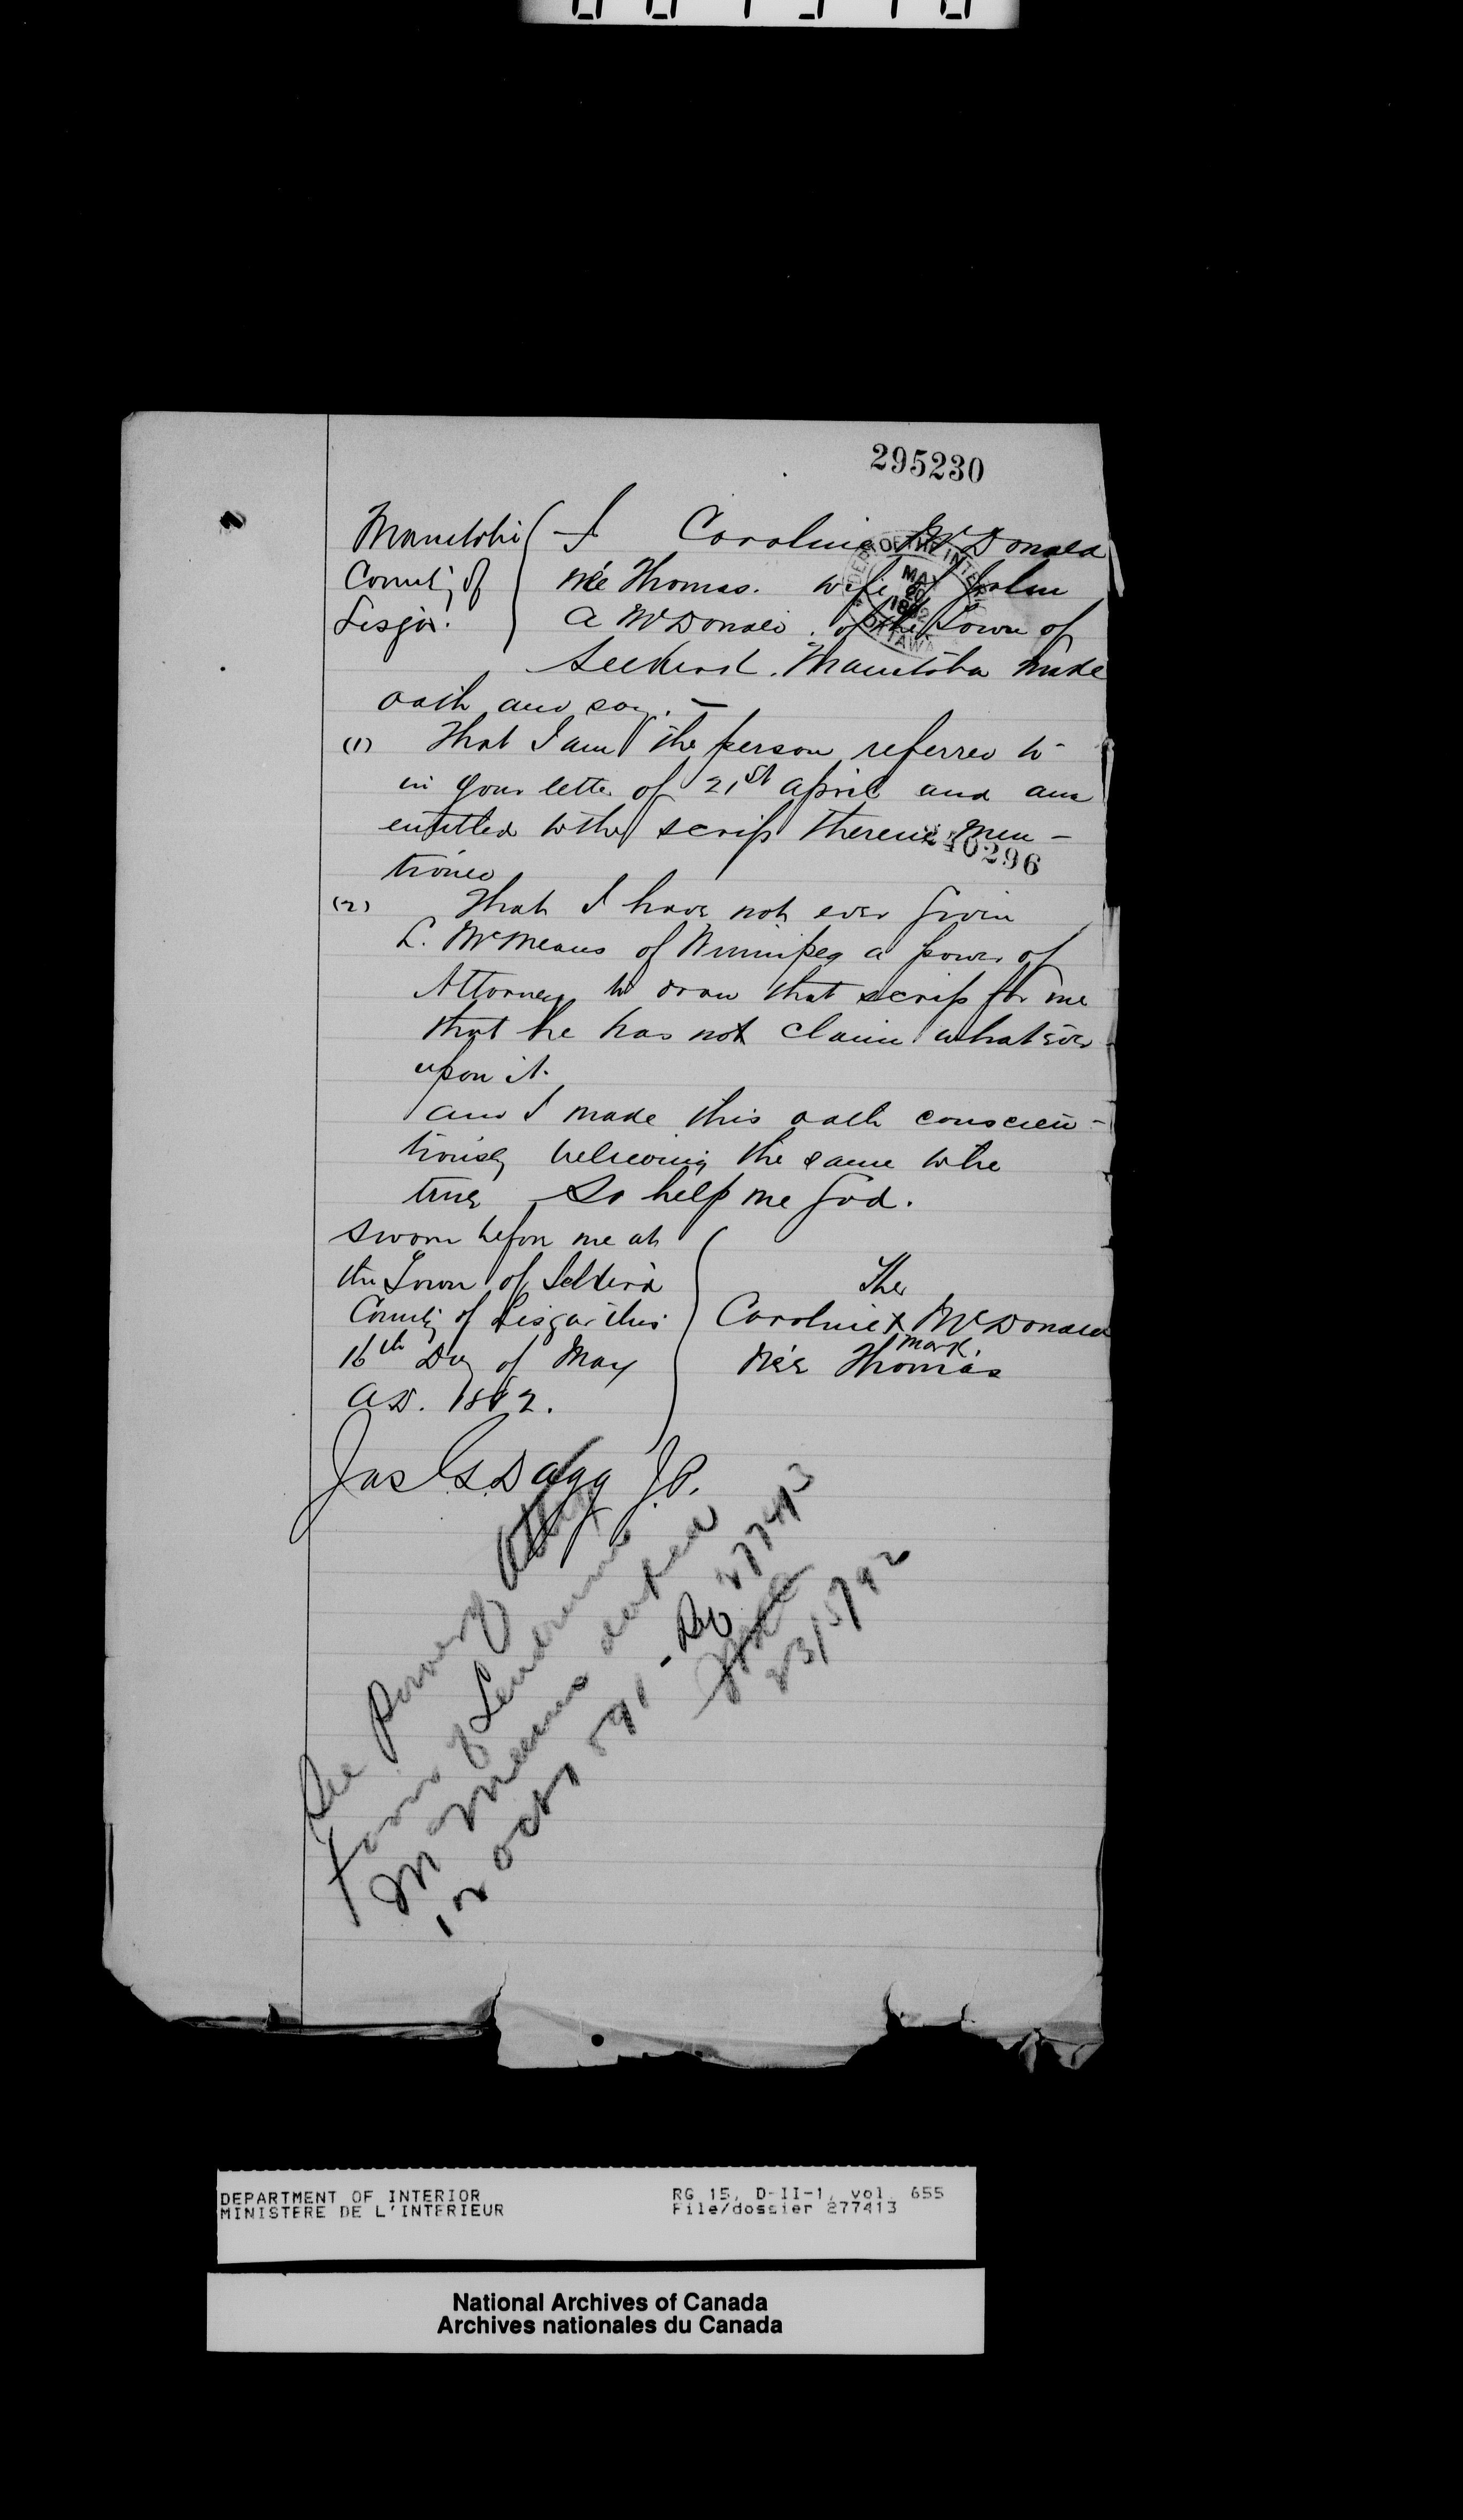 295230
Manitoba I Caroline McDonald
County of née Thomas. wife of John
Lisgar. A McDonald. of the Town of
Selkirk. Manitoba make
oath and say. —
(1) That I am the person referred to
in your letter of 21st April and am
entitled to the scrip therein men-
240296
tioned
(2) That I have not ever given
L. McMeans of Winnipeg a power of
Attorney to draw that scrip for me
that he has not claim whatever
upon it.
and I make this oath conscien-
tiously believing the same to be
true So help me God.
Sworn before me at
the Town of Selkirk
County of Lisgar this
16th Day of May
AD. 1892.
Her
Caroline X McDonald
mark.
née Thomas
Jas G Dagg J.P.
DEPT OF THE INTERIOR
MAY
20
1892
OTTAWA
See power of Atty
favor of Lendrum
McMeans dated
12 Oct 1891 - Ref 277413
23/5/92
DEPARTMENT OF INTERIOR RG 15, D-II-1, vol. 655
MINISTERE DE L'INTERIEUR File/dossier 277413
National Archives of Canada
Archives nationales du Canada